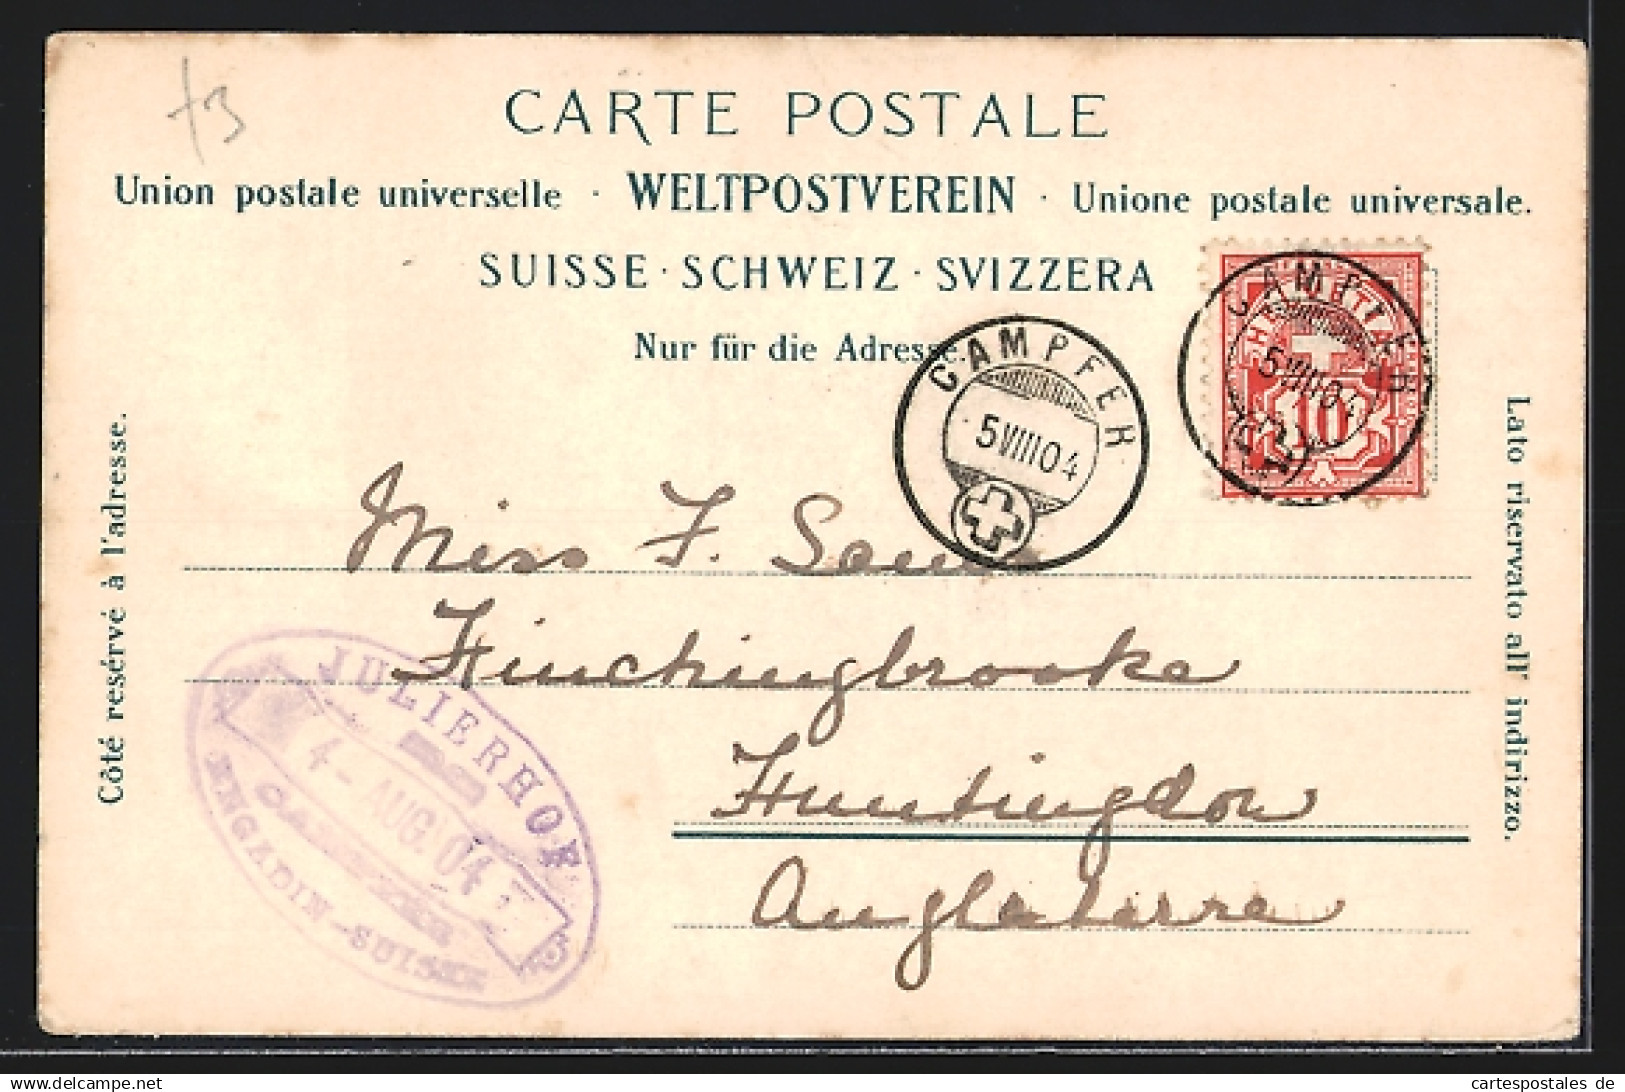 73
CARTE POSTALE
Union postale universelle · WELTPOSTVEREIN · Unione postale universale.
SUISSE · SCHWEIZ · SVIZZERA
Nur für die Adresse.
CAMPFER
5 VIII 04
CAMPFER
5 VIII 04
HELVETIA
10
Côté resérvé à l'adresse.
Lato riservato all' indirizzo.
Miss F.
Hinchingbrooke
Huntingdon
Angleterre
JULIERHOF
4 - AUG. 04
CAMPFER
ENGADIN-SUISSE
cartespostales de
www.delcampe.net